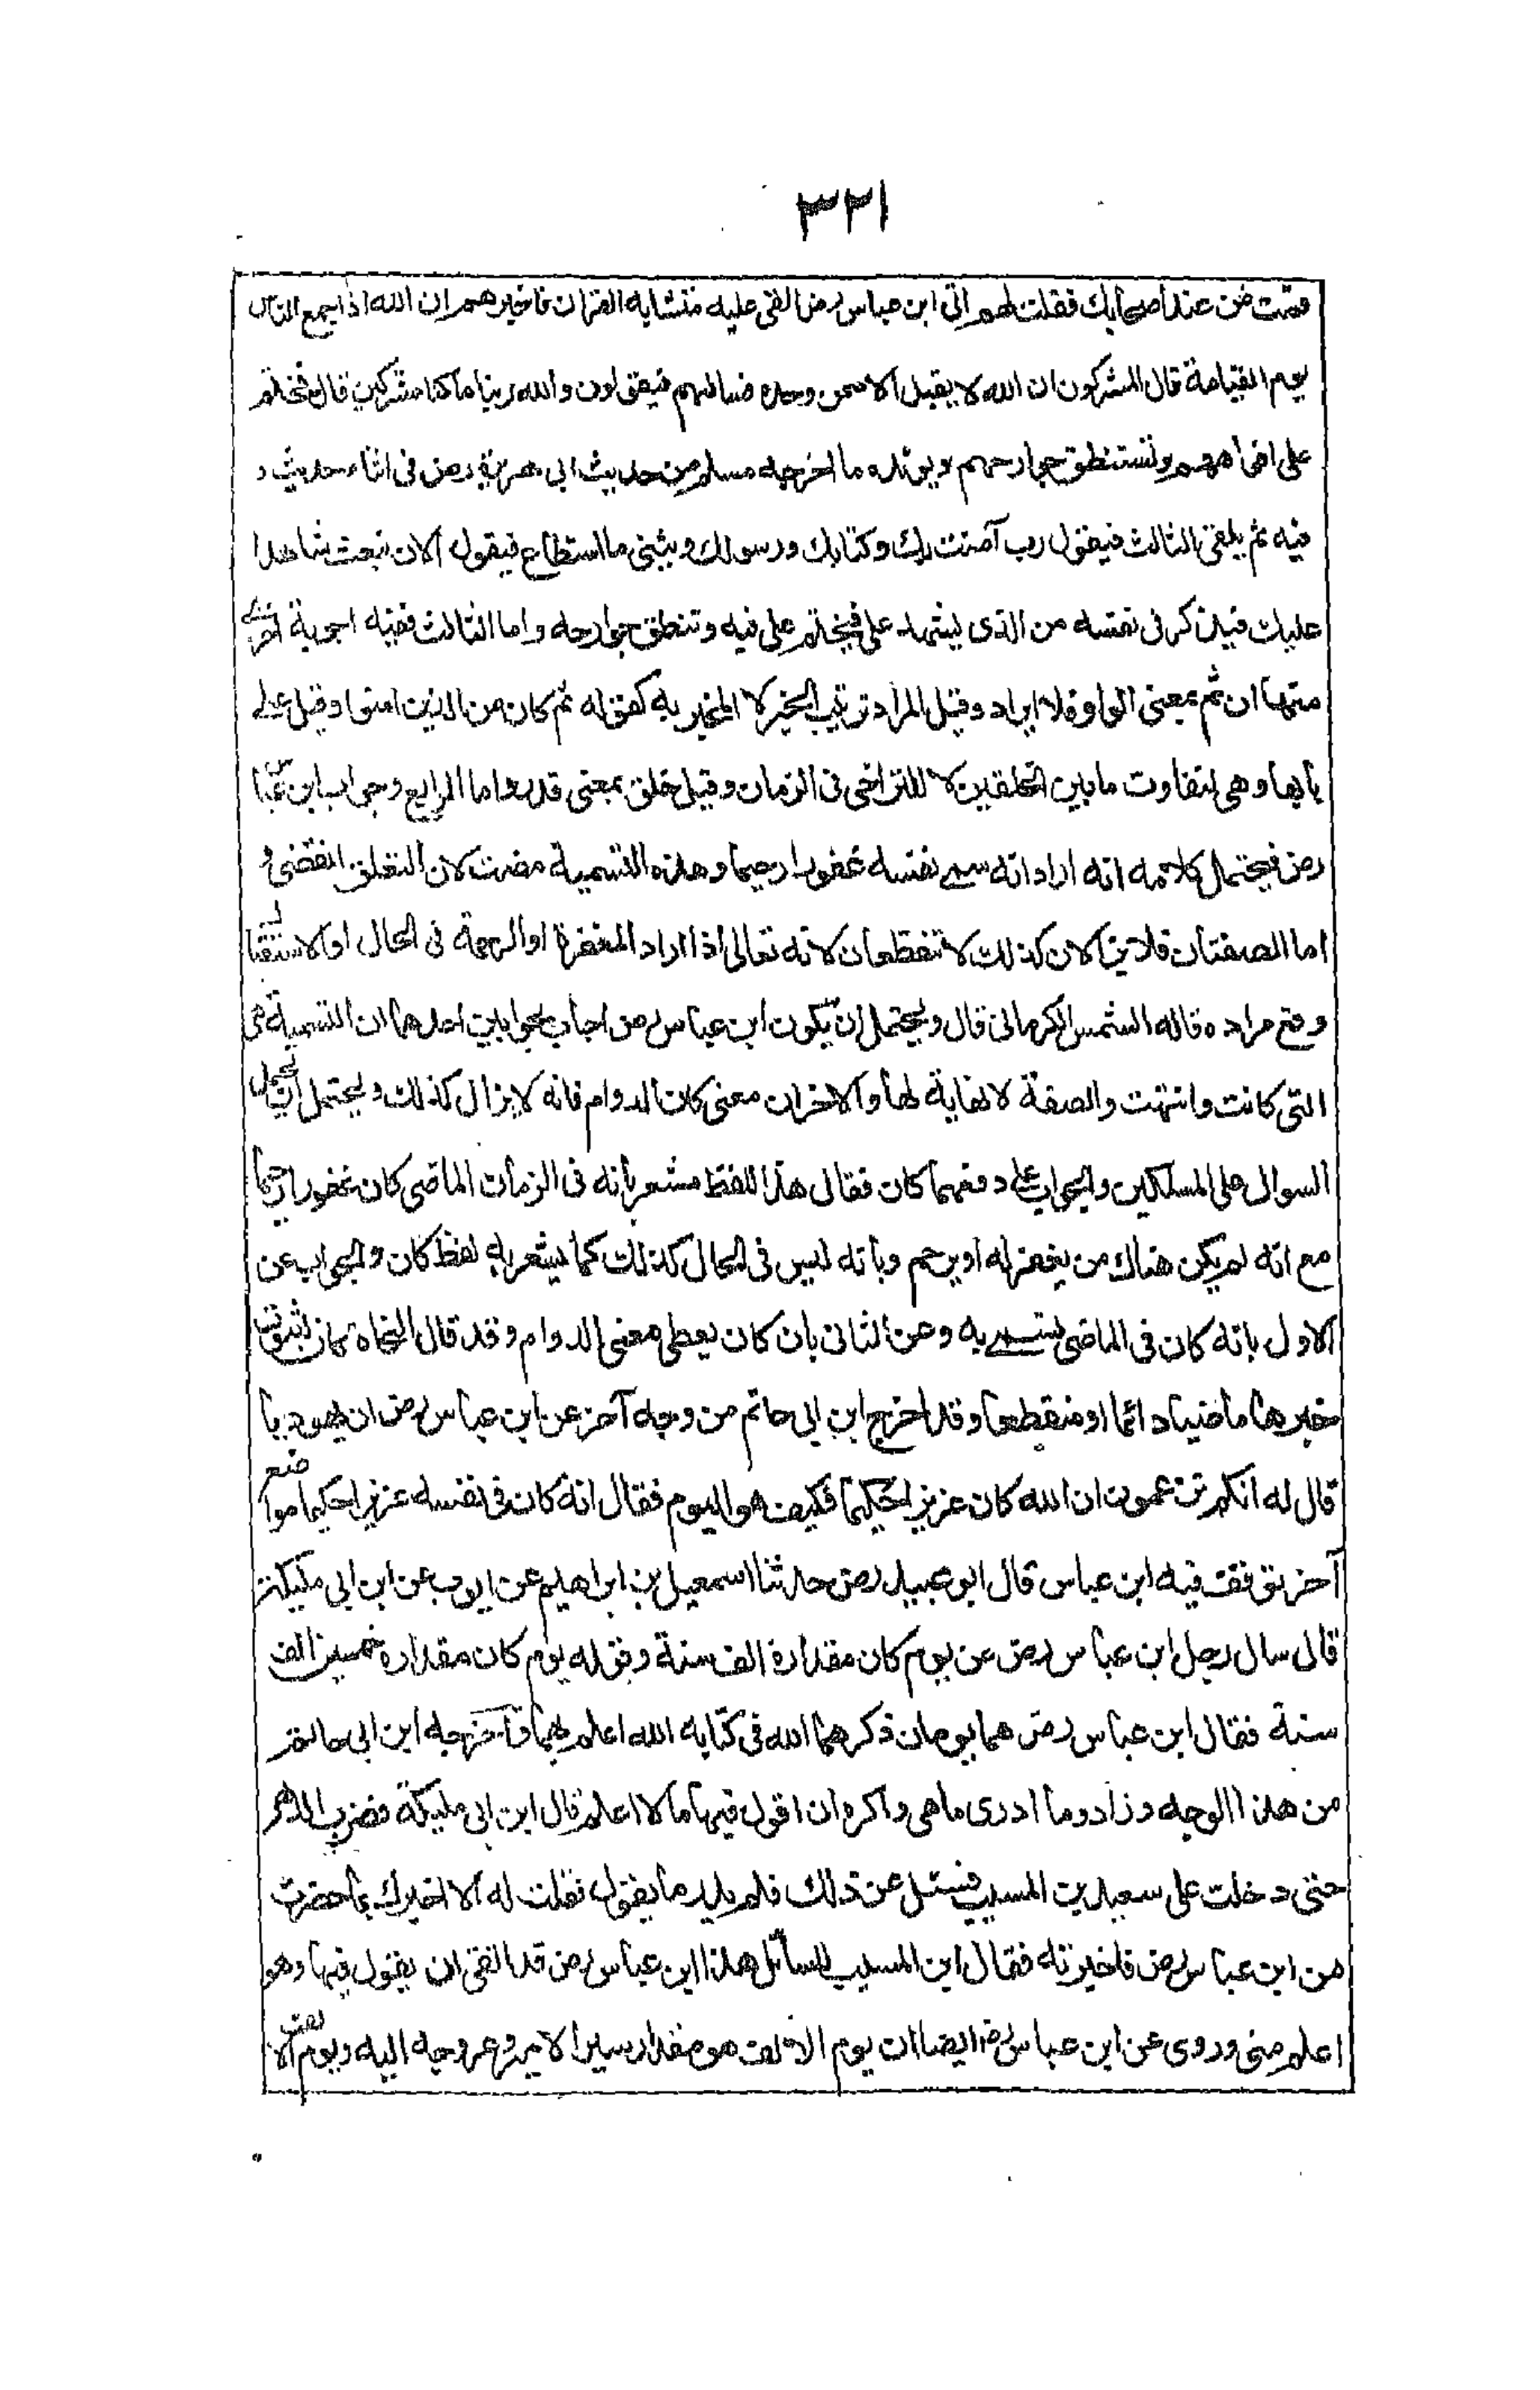 ٣٢١
قمت من عند اصحابك فقلت لهم اٰتى ابن عباس رض القى عليه متشابه القران فاخبرهم ان الله اذا جمع الناس
يوم القيامة قال المشركون ان الله لا يقبل الا ممن وحده فسالهم فيقولون والله ربنا ما كنا مشركين قال فختم
على افواههم وتستنطق جوارحهم ويؤيده ما اخرجه مسلم من حديث ابى هريرة رض فى اثناء حديث و
فيه ثم يلقى الثالث فيقول رب آمنت بك وكتابك ورسولك ويثنى ما استطاع فيقول الان نبعث شاهدا
عليك فيذكر فى نفسه من الذى يشهد على فيختم على فيه وتنطق جوارحه واما الثالث ففيه اجوبة اخرى
منها ان ثم بمعنى الواو فلا ايراد وقيل المراد ترتيب الخبر لا المخبر به كقوله ثم كان من الذين امنوا وقيل على
بابها وهى لتفاوت ما بين الخلقين لا للتراخى فى الزمان وقيل خلق بمعنى قدر واما الرابع وجواب ابن عبا
رض فيحتمل كلامه انه اراد انه سمى نفسه غفورا رحيما وهذه التسمية مضت لان التعلق انقضى و
اما الصفتان فلا تزالان كذلك لا تنقطعان لانه تعالى اذا اراد المغفرة او الرحمة فى الحال او الاستقبال
وقع مراده قاله الشمس الكرمانى قال ويحتمل ان يكون ابن عباس رض اجاب بجوابين احدهما ان التسمية هى
التى كانت وانتهت والصفة لا نهاية لها والاخر ان معنى كان الدوام فانه لا يزال كذلك ويحتمل ان يحمل
السوال على المسلكين والجواب على دفعهما كان فقال هذا اللفظ مشعر بانه فى الزمان الماضى كان غفورا رحيما
مع انه لم يكن هناك من يغفر له او يرحم وبانه ليس فى الحال كذلك كما يشعر به لفظ كان والجواب عن
الاول بانه كان فى الماضى يسمى به وعن الثانى بان كان يعطى معنى الدوام وقد قال النحاة كان لثبوت
خبرها ماضيا دائما او منقطعا وقد اخرج ابن ابى حاتم من وجه آخر عن ابن عباس رض ان يهوديا
قال له انكم تزعمون ان الله كان عزيزا حكيما فكيف هو اليوم فقال انه كان فى نفسه عزيزا حكيما موا ضع
آخر توقف فيه ابن عباس قال ابو عبيد رض حدثنا اسمعيل بن ابراهيم عن ايوب عن ابن ابى مليكة
قال سال رجل ابن عباس رض عن يوم كان مقداره الف سنة وقوله يوم كان مقداره خمسين الف
سنة فقال ابن عباس رض هما يومان ذكرهما الله فى كتابه الله اعلم بهما واخرجه ابن ابى حاتم
من هذا الوجه وزاد وما ادرى ما هى واكره ان اقول فيها ما لا اعلم قال ابن ابى مليكة فضرب الدهر
حتى دخلت على سعيد بن المسيب فسئل عن ذلك فلم يدر ما يقول فقلت له الا اخبرك بما حضرت
من ابن عباس رض فاخبرته فقال ابن المسيب للسائل هذا ابن عباس رض قد اتقى ان يقول فيها وهو
اعلم منى وروى عن ابن عباس رض ايضا ان يوم الالف هو مقدار سير الامر وعروجه اليه ويوم الالف